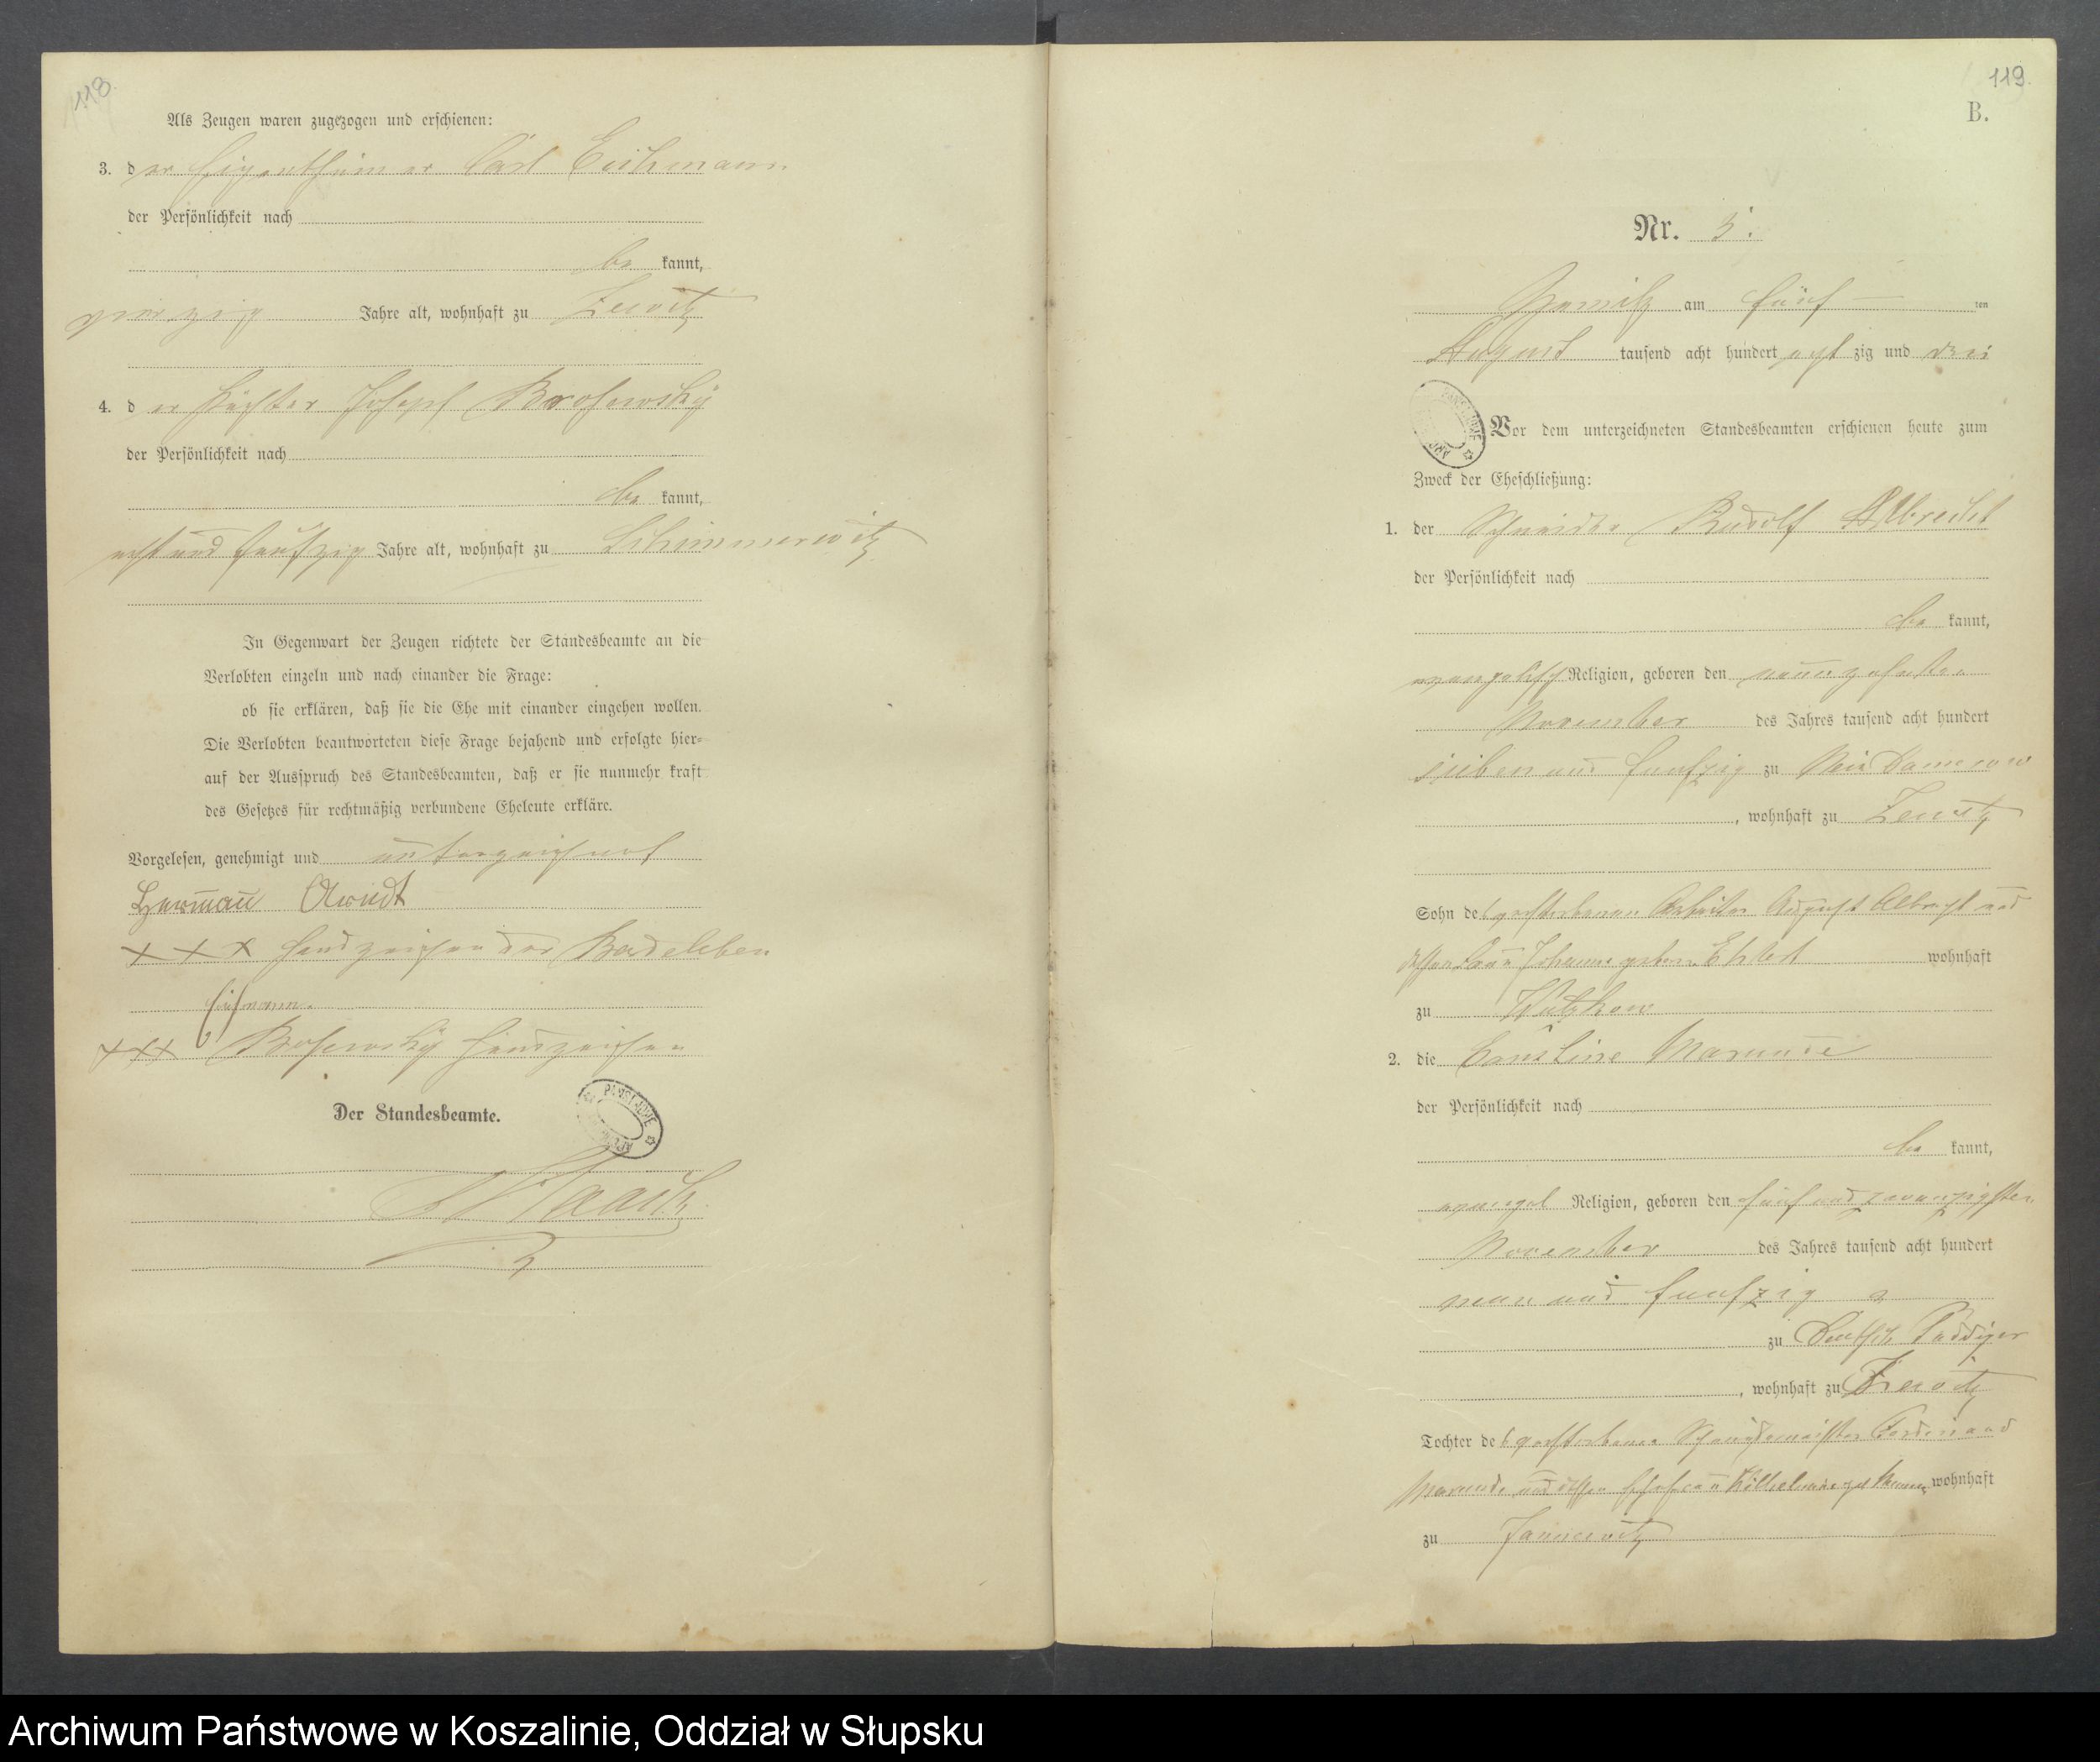 118.
Als Zeugen waren zugezogen und erschienen:
3. der Eigenthümer Carl Eichmann
der Persönlichkeit nach
be kannt,
vierzig Jahre alt, wohnhaft zu Zewitz
4. der Pächter Joseph Brosewsky
der Persönlichkeit nach
be kannt,
acht und fünfzig Jahre alt, wohnhaft zu Schimmerwitz
In Gegenwart der Zeugen richtete der Standesbeamte an die
Verlobten einzeln und nach einander die Frage:
ob sie erklären, daß sie die Ehe mit einander eingehen wollen.
Die Verlobten beantworteten diese Frage bejahend und erfolgte hier-
auf der Ausspruch des Standesbeamten, daß er sie nunmehr kraft
des Gesetzes für rechtmäßig verbundene Eheleute erkläre.
Vorgelesen, genehmigt und unterzeichnet
Herman Arndt
+ + + Handzeichen der
+++ Handzeichen
Der Standesbeamte.
119.
B.
Nr.
am fünf ten
August tausend acht hundert acht zig und drei
Vor dem unterzeichneten Standesbeamten erschienen heute zum
Zweck der Eheschließung:
1. der Schneider Rudolf Albrecht
der Persönlichkeit nach
be kannt,
evangelisch Religion, geboren den neunzehnten
November des Jahres tausend acht hundert
sieben und funfzig zu Neu Damerow
, wohnhaft zu Zewitz
Sohn des verstorbenen Arbeiter August Albrecht und
dessen Johanne geborne wohnhaft
zu Wutzkow
2. die Ernstine Marunde
der Persönlichkeit nach
be kannt,
evangel Religion, geboren den fünf und zwanzigsten
November des Jahres tausend acht hundert
neun und funfzig
zu Deutsch Puddiger
, wohnhaft zu Zewitz
Tochter des verstorbenen Ferdinand
Marunde und dessen Ehefrau Wilhelmine geb wohnhaft
zu Jannewitz
Archiwum Państwowe w Koszalinie, Oddział w Słupsku